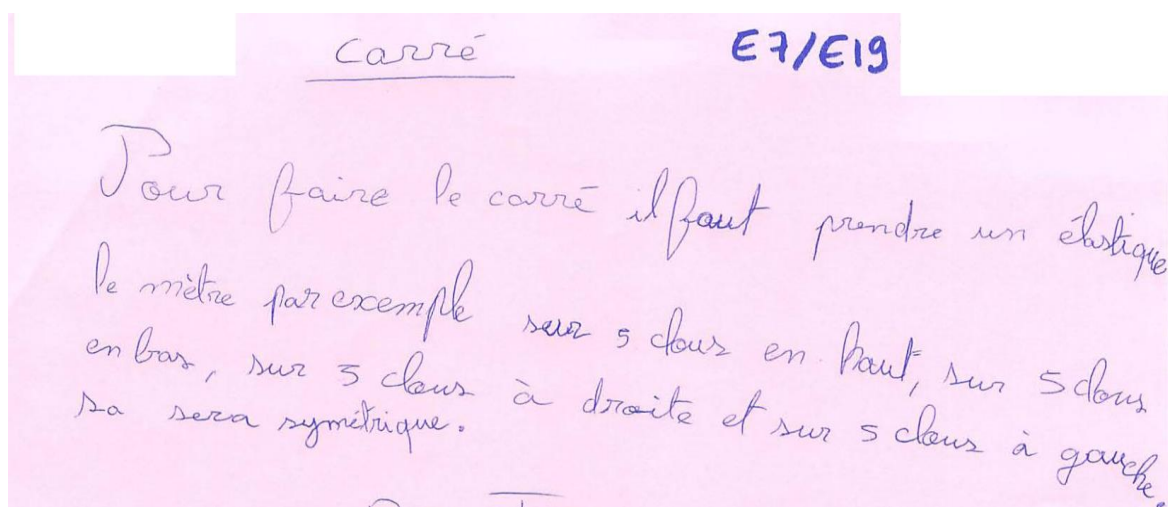 carré E7/E19
Pour faire le carré il faut prendre un élastique
le mètre par exemple sur 5 clous en haut, sur 5 clous
en bas, sur 5 clous à droite et sur 5 clous à gauche.
sa sera symétrique.